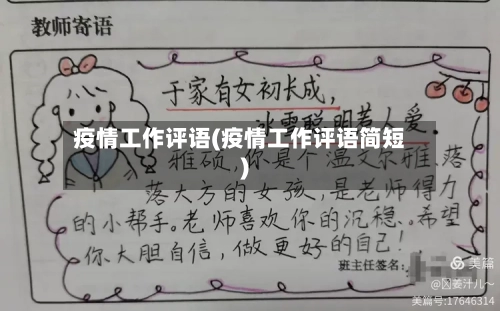 教师寄语
于家有女初长成，
冰雪聪明惹人爱。
疫情工作评语(疫情工作评语简短
)
雅硕，你是个温文尔雅、落
落大方的女孩，是老师得力
的小帮手。老师喜欢你的沉稳。希望
你大胆自信，做更好的自己！
班主任签名：
美篇
@因姜汁儿～
美篇号:17646314